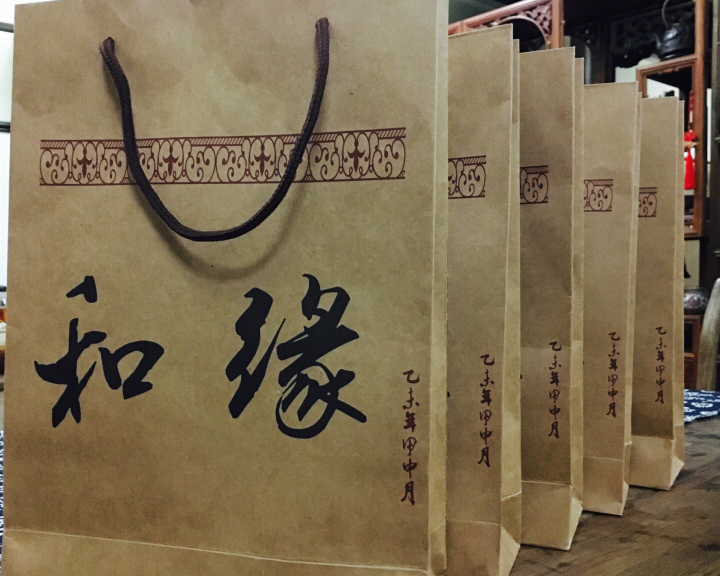 和缘
乙未年甲申月
乙未年甲申月
乙未年甲申月
乙未年甲申月
乙未年甲申月